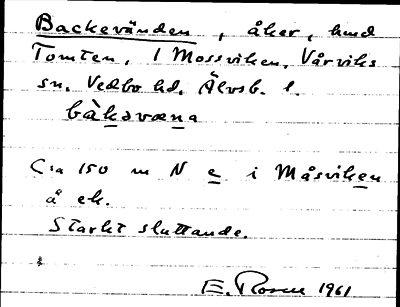 Backevänden, åker, hmd
Tomten, 1 Mossviken, Vårviks
sn, Vedbo hd, Älvsb. l.
bàkəvæna
Ca 150 m N e i Måsviken
å ek.
Starkt sluttande.
E. Rosen 1961